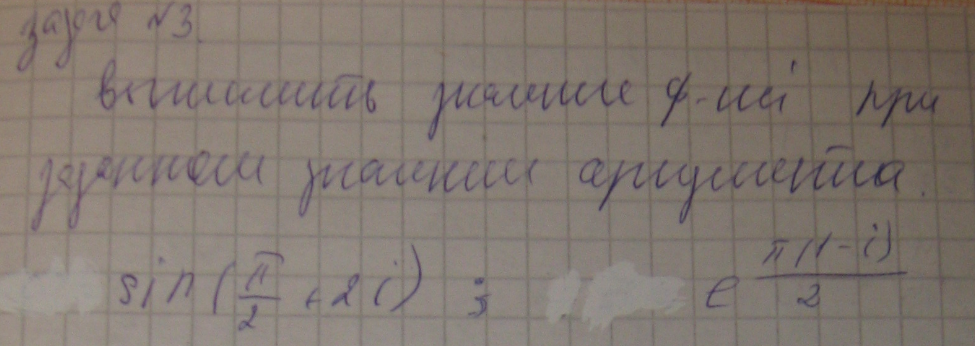 задача №3.
вычислить значение ф-ий при
заданном значении аргумента.
sin(π/2 + 2i) ; e^(π(1-i)/2)